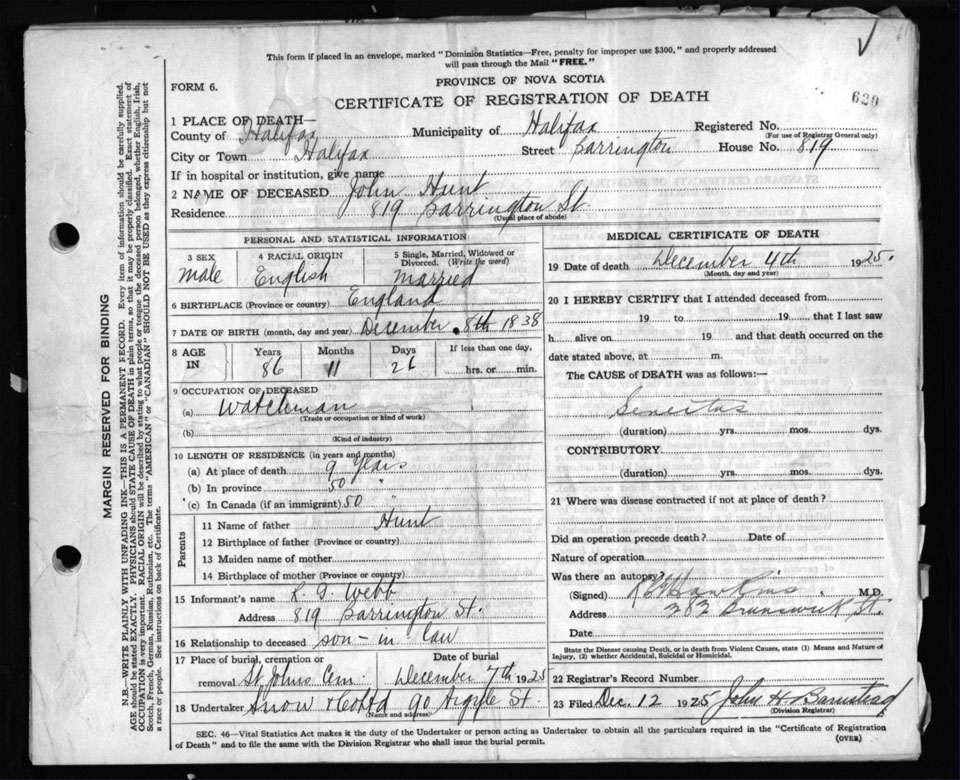 This form if placed in an envelope, marked "Dominion Statistics—Free, penalty for improper use $300," and properly addressed
will pass through the Mail "FREE."
PROVINCE OF NOVA SCOTIA
FORM 6.
CERTIFICATE OF REGISTRATION OF DEATH
620
1 PLACE OF DEATH—
County of Halifax Municipality of Halifax Registered No.
(For use of Registrar General only)
City or Town Halifax Street Barrington House No. 819
If in hospital or institution, give name
2 NAME OF DECEASED John Hunt
Residence 819 Barrington St.
(Usual place of abode)
PERSONAL AND STATISTICAL INFORMATION
3 SEX 4 RACIAL ORIGIN 5 Single, Married, Widowed or Divorced. (Write the word)
male English Married
6 BIRTHPLACE (Province or country) England
7 DATE OF BIRTH (month, day and year) December 8th 1838
8 AGE IN Years Months Days If less than one day,
86 11 26 hrs. or min.
9 OCCUPATION OF DECEASED
(a) Watchman
(Trade or occupation or kind of work)
(b)
(Kind of industry)
10 LENGTH OF RESIDENCE (in years and months)
(a) At place of death 9 Years
(b) In province 50 "
(c) In Canada (if an immigrant) 50 "
Parents
11 Name of father Hunt
12 Birthplace of father (Province or country)
13 Maiden name of mother
14 Birthplace of mother (Province or country)
15 Informant's name Webb
Address 819 Barrington St.
16 Relationship to deceased son-in law
17 Place of burial, cremation or removal St Johns Cem Date of burial December 7th 1925
18 Undertaker Snow & Co Ltd 90 Argyle St.
(Name and address)
MEDICAL CERTIFICATE OF DEATH
19 Date of death December 4th 1925.
(Month, day and year)
20 I HEREBY CERTIFY that I attended deceased from
19 to 19 that I last saw
h alive on 19 and that death occurred on the
date stated above, at m.
The CAUSE of DEATH was as follows:—
Senectus
(duration) yrs. mos. dys.
CONTRIBUTORY
(duration) yrs. mos. dys.
21 Where was disease contracted if not at place of death?
Did an operation precede death? Date of
Nature of operation
Was there an autopsy?
(Signed) Hawkins M.D.
Address 282 Brunswick St.
Date
State the Disease causing Death, or in death from Violent Causes, state (1) Means and Nature of
Injury, (2) whether Accidental, Suicidal or Homicidal.
22 Registrar's Record Number
23 Filed Dec. 12 1925 John H. Barnstead
(Division Registrar)
SEC. 46—Vital Statistics Act makes it the duty of the Undertaker or person acting as Undertaker to obtain all the particulars required in the "Certificate of Registration
of Death" and to file the same with the Division Registrar who shall issue the burial permit.
(OVER)
MARGIN RESERVED FOR BINDING
N.B.—WRITE PLAINLY WITH UNFADING INK—THIS IS A PERMANENT RECORD. Every item of information should be carefully supplied.
AGE should be stated EXACTLY. PHYSICIANS should STATE CAUSE OF DEATH in plain terms, so that it may be properly classified. Exact statement of
OCCUPATION is very important. RACIAL ORIGIN will be described by stating to what people or tongue the deceased person belonged, whether English, Irish,
Scotch, French, German, Russian, Ruthenian, etc. The terms "AMERICAN" or "CANADIAN" SHOULD NOT BE USED as they express citizenship but not
a race or people. See instructions on back of Certificate.